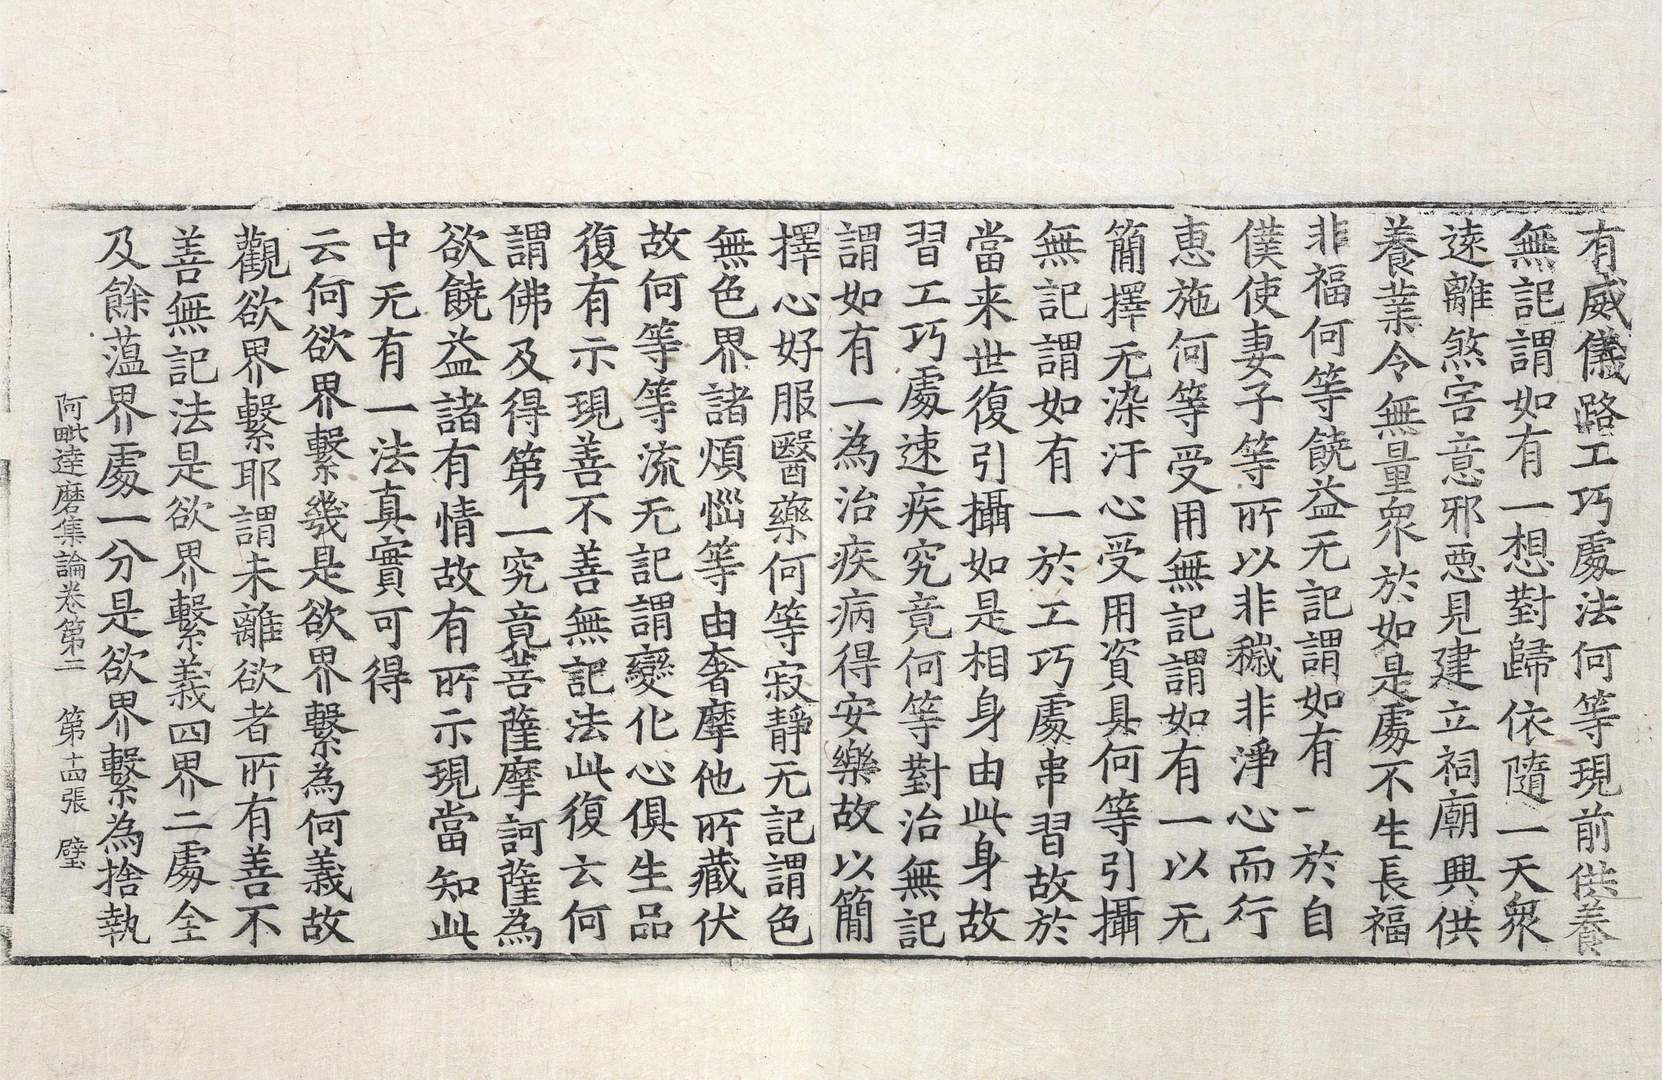 有威儀路工巧處法何等現前供養
無記謂如有一想對歸依隨一天衆
逺離煞害意邪惡見建立祠廟興供
養業令無量衆於如是處不生長福
非福何等饒益无記謂如有一於自
僕使妻子等所以非穢非淨心而行
恵施何等受用無記謂如有一以无
簡擇无染汙心受用資具何等引攝
無記謂如有一於工巧處串習故於
當来世復引攝如是相身由此身故
習工巧處速疾究竟何等對治無記
謂如有一為治疾病得安樂故以簡
擇心好服醫藥何等寂靜无記謂色
無色界諸煩惱等由奢摩他所藏伏
故何等等流无記謂變化心俱生品
復有示現善不善無記法此復云何
謂佛及得第一究竟菩薩摩訶薩為
欲饒益諸有情故有所示現當知此
中无有一法真實可得
云何欲界繫幾是欲界繫為何義故
觀欲界繫耶謂未離欲者所有善不
善無記法是欲界繫義四界二處全
及餘蕰界處一分是欲界繫為捨執
阿毗達磨集論卷第二　第十四張　璧